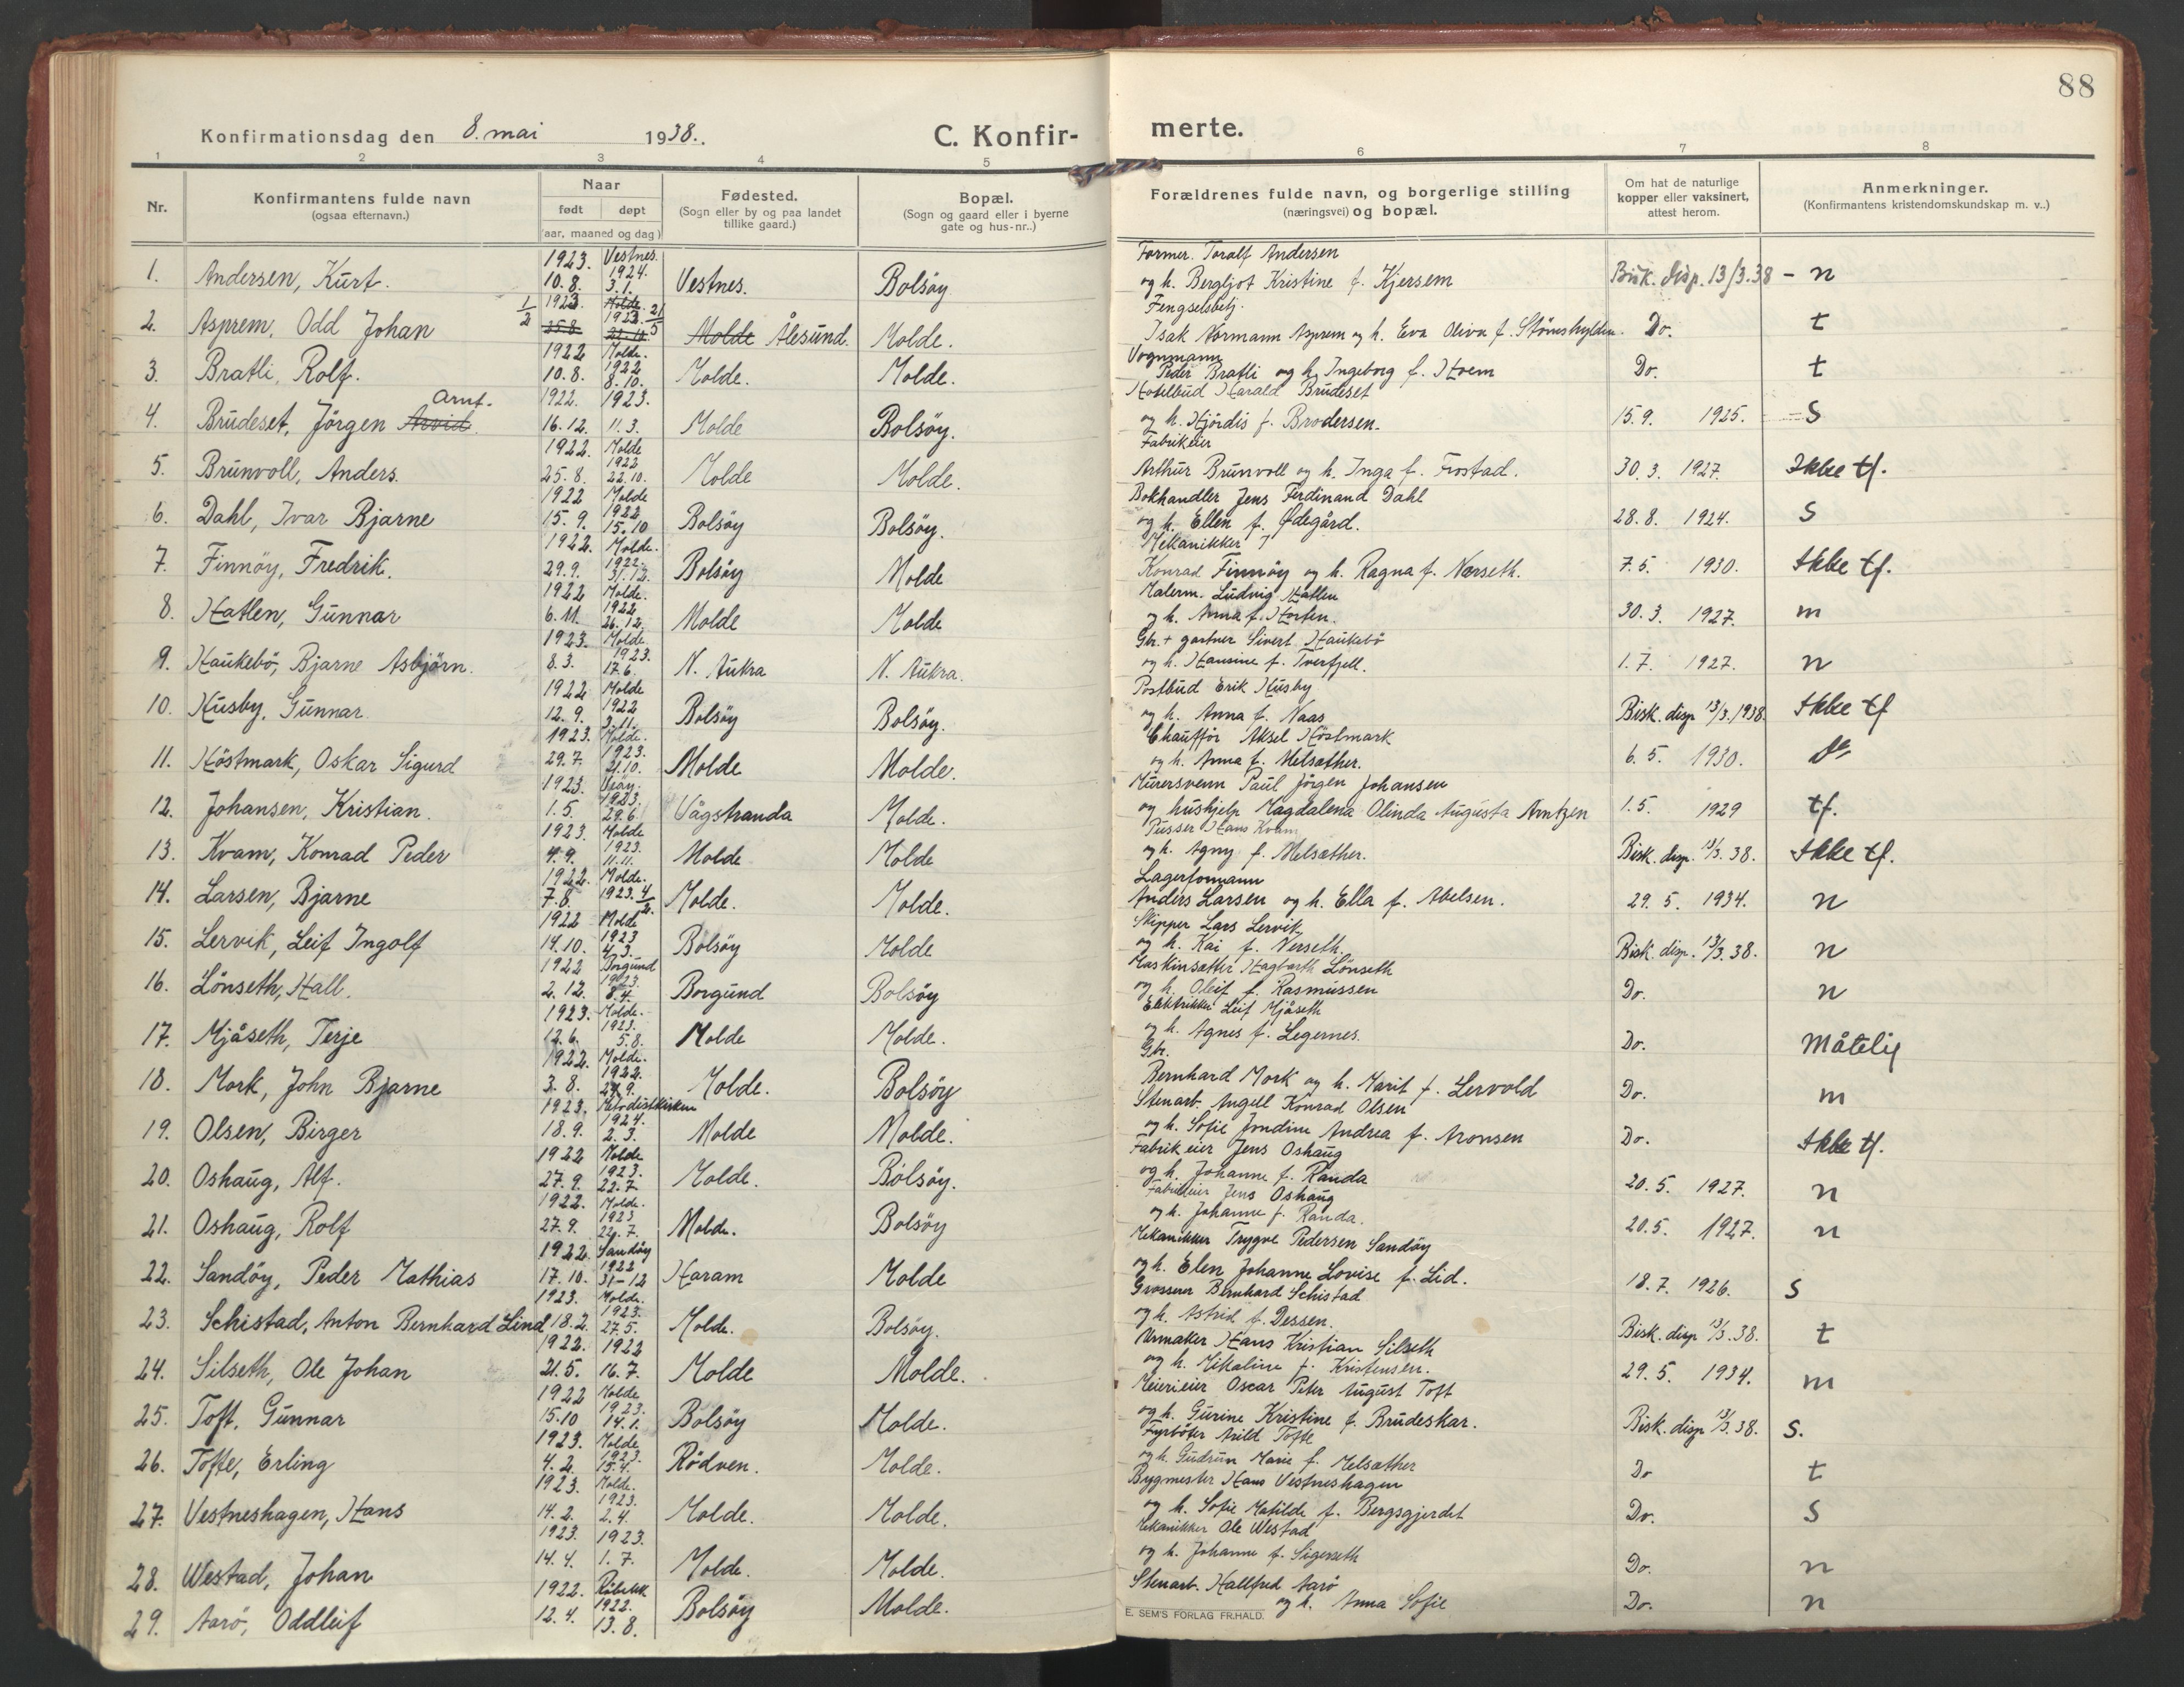 88
Konfirmationsdag den 8. mai 1938. C. Konfirmerte.
1 2 3 4 5 6 7 8
Nr. Konfirmantens fulde navn (ogsaa efternavn.) Naar født døpt (aar, maaned og dag) Fødested. (Sogn eller by og paa landet tillike gaard.) Bopæl. (Sogn og gaard eller i byerne gate og hus-nr..) Forældrenes fulde navn, og borgerlige stilling (næringsvei) og bopæl. Om hat de naturlige kopper eller vaksinert, attest herom. Anmerkninger. (Konfirmantens kristendomskundskap m. v..)
1923. Vestnes. Former. Toralf Andersen
1. Andersen, Kurt. 10.8. 1924. 3.1. Vestnes. Bolsøy og h. Bergljot Kristine f. Kjersem Bisk. disp. 13/3.38 - n
1/2 1923 Molde 1923. 21/5 Fengselsbetj.
2. Asprem, Odd Johan 25.8. Molde Ålesund. Molde. Isak Normann Asprem og h. Eva Oliva f. Do. t
1922 Molde. Vognmann
3. Bratli, Rolf. 10.8. 1922 8.10. Molde. Molde. Peder Bratli og h. Ingeborg f. Hoem Do. t
Arnt. 1922. 1923. Hotellbud Harald Brudeset
4. Brudeset, Jörgen Arvid 16.12. 11.3. Molde Bolsöy. og h. Hjördis f. Brodersen. 15.9. 1925. - S
1922. Molde Fabrikeier
5. Brunvoll, Anders. 25.8. 1922 22.10. Molde Molde. Arthur Brunvoll og h. Inga f. Frostad. 30.3. 1927. Ikke tf.
1922 Molde Bokhandler Jens Ferdinand Dahl
6. Dahl, Ivar Bjarne 15.9. 1922 15.10 Bolsöy Bolsöy. og h. Ellen f. Ødegård. 28.8. 1924. S
1922. Molde. Mekanikker
7. Finnöy, Fredrik. 29.9. 1922. 31.12. Bolsöy Molde Konrad Finnöy og h. Ragna f. Nerseth. 7.5. 1930. Ikke tf.
1922 Molde. Malerm. Ludvig Hatlen
8. Hatlen, Gunnar 6.11. 1922 26.12. Molde Molde og h. Anna f. Horten. 30.3. 1927. m
1923. Molde Gbr. + gartner Sivert Haukebö
9. Haukebö, Bjarne Asbjörn. 8.3. 1923. 17.6. N. Aukra N. Aukra. og h. Hansine f. Tverfjell. 1.7. 1927. n
1922 Molde Postbud Erik Husby
10. Husby, Gunnar 12.9. 1922 3.11. Bolsöy Bolsöy. og h. Anna f. Naas Bisk. disp 13/3.1938. Ikke tf
1923. Molde. Chauffør Aksel Höstmark
11. Höstmark, Oskar Sigurd 29.7. 1923. 21.10. Molde Molde. og h. Anna f. Melsæther. 6.5. 1930. Do
1923. Veöy. Murersvenn Paul Jörgen Johansen
12. Johansen, Kristian. 1.5. 1923. 29.6. Vågstranda Molde. og hushjelp Magdalena Olinda Augusta Arntzen 1.5. 1929 tf.
1923. Molde Pusser Hans Kvam
13. Kvam, Konrad Peder 4.9. 1923. 11.11. Molde Molde og h. Agny f. Melsæther. Bisk. disp. 13/3. 38. Ikke tf.
1922. Molde. Lagerformann
14. Larsen, Bjarne 7.8. 1923. 4/2. Molde. Molde. Anders Larsen og h. Ella f. Abelsen. 29.5. 1934. n
1922 Molde Skipper Lars Lervik
15. Lervik, Leif Ingolf 14.10. 1923 4.3. Bolsöy Molde og h. Kai f. Nerseth. Bisk. disp. 13/3. 38. n
1922 Borgund Maskinsætter Hagbarth Lönseth
16. Lönseth, Hall. 2.12. 1923. 8.4. Borgund Bolsöy og h. Oleif f. Rasmussen Do. n
1923. Molde. Elektrikker Leif Mjåseth
17. Mjåseth, Terje 12.6. 1923. 5.8. Molde Molde. og h. Agnes f. Legernes. Do. Måtelig
1922. Molde. Gbr.
18. Mork, John Bjarne 3.8. 1922. 24.9. Molde. Bolsöy Bernhard Mork og h. Marit f. Lervold Do. m
1923. Metodistkirken Stenarb. Angell Konrad Olsen
19. Olsen, Birger 18.9. 1924. 2.3. Molde Molde. og h. Sofie Jondine Andrea f. Aronsen Do. Ikke tf.
1922 Molde Fabrikeier Jens Oshaug
20. Oshaug, Alf. 27.9. 1923. 22.7. Molde. Bolsöy. og h. Johanne f. Randa 20.5. 1927. n
1922. Molde. Fabrikeier Jens Oshaug
21. Oshaug, Rolf 27.9. 1923 22.7. Molde. Bolsöy og h. Johanne f. Randa. 20.5. 1927. n
1922. Sandöy Mekanikker Trygve Pedersen Sandöy
22. Sandöy, Peder Mathias 17.10. 1922 31-12 Haram Molde og h. Elen Johanne Lovise f. Lid. 18.7. 1926. S
1923. Molde. Grosserer Bernhard Schistad
23. Schistad, Anton Bernhard Lind 18.2. 1923. 27.5. Molde. Bolsöy. og h. Astrid f. Dessen. Bisk. disp 13/3.38. t
1922. 1922 Urmaker Hans Kristian Silseth
24. Silseth, Ole Johan 21.5. 16.7. Molde Molde. og h. Mikaline f. Kristensen. 29.5. 1934. m
1922 Molde Meierieier Oscar Peter August Toft
25. Toft, Gunnar 15.10 1923. 14.1. Bolsöy Molde. og h. Gurine Kristine f. Brudeskar. Bisk. disp 13/3.38. S.
1923. Molde Fyrböter Arild Tofte
26. Tofte, Erling 4.2. 1923. 15.4. Rödven. Molde. og h. Gudrun Marie f. Melsæther Do t
1923. Molde. Bygmester Hans Vestneshagen
27. Vestneshagen, Hans 14.2. 1923. 2.4. Molde. Molde. og h. Sofie Matilde f. Bergsgjerdet Do. S
1923. 1923. Mekanikker Ole Westad
28. Westad, Johan 14.4. 1.7. Molde. Molde. og h. Johanne f. Sigerseth Do. n
1922. Röbekk Stenarb. Hallfred Aarö
29. Aarö, Oddleif 12.4. 1922. 13.8. Bolsöy Molde. og h. Anna Sofie Do. n
E. SEM'S FORLAG FR.HALD.